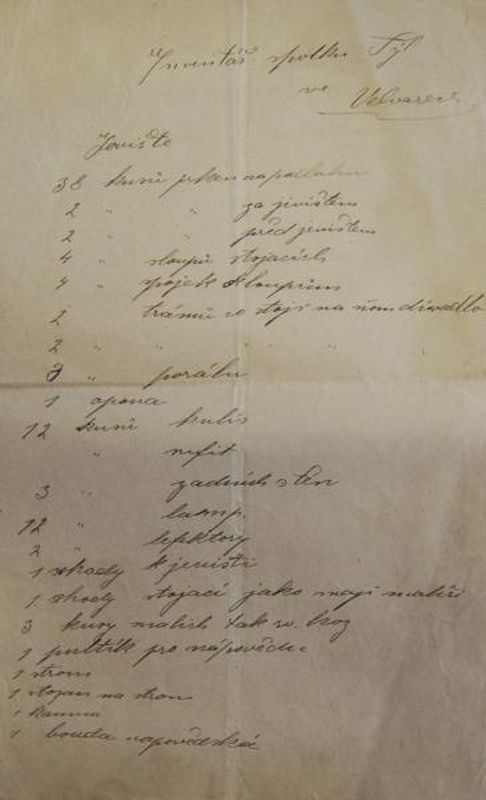 Inventář spolku Tyl
ve Velvarech
Jeviště
38 kusů prken na podlahu
2 " " za jevištem
2 " " před jevištem
4 " sloupů stojacích
4 " spojek k sloupům
2 trámů co stojí na nom divadlo
2 " " " " "
" 
1 opona
12 kusů kulis
" sufit
3 " zadních stěn
12 " lamp.
2 "
1 schody k jevišti
1 schody stojací jako mají malíři
3 kusy malích tak zv.
1 pultík pro nápovědu
1 strom
1 stojan na strom
1 kamna
1 bouda napovědská